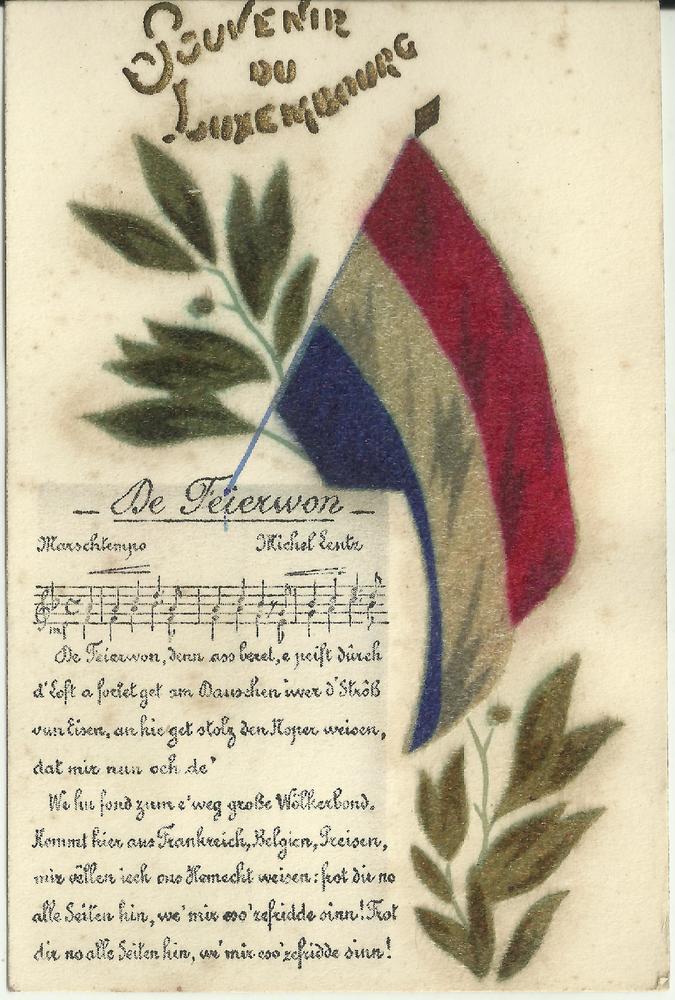 SOUVENIR
DU
LUXEMBOURG
— De Feierwon —
Marschtempo Michel Lentz
mf
De Feierwon, denn ass beret, e peift dûrch
d'Loft a fortet get am Dauschen iwer d'Strôß
vun Eisen, an hie get stolz den Noper weisen,
dat mir nun och de'
We hu fond zum e'weg große Wölkerbond.
Kommt hier aus Frankreich, Belgien, Preisen,
mir wëllen iech ons Hemecht weisen: frot dir no
alle Seiten hin, we' mir eso' zefridde sinn! Frot
dir no alle Seiten hin, we' mir eso' zefridde sinn!